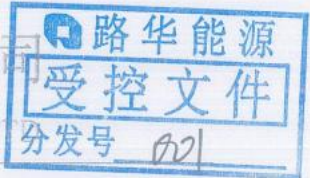 路华能源
司
受控文件
分发号 001